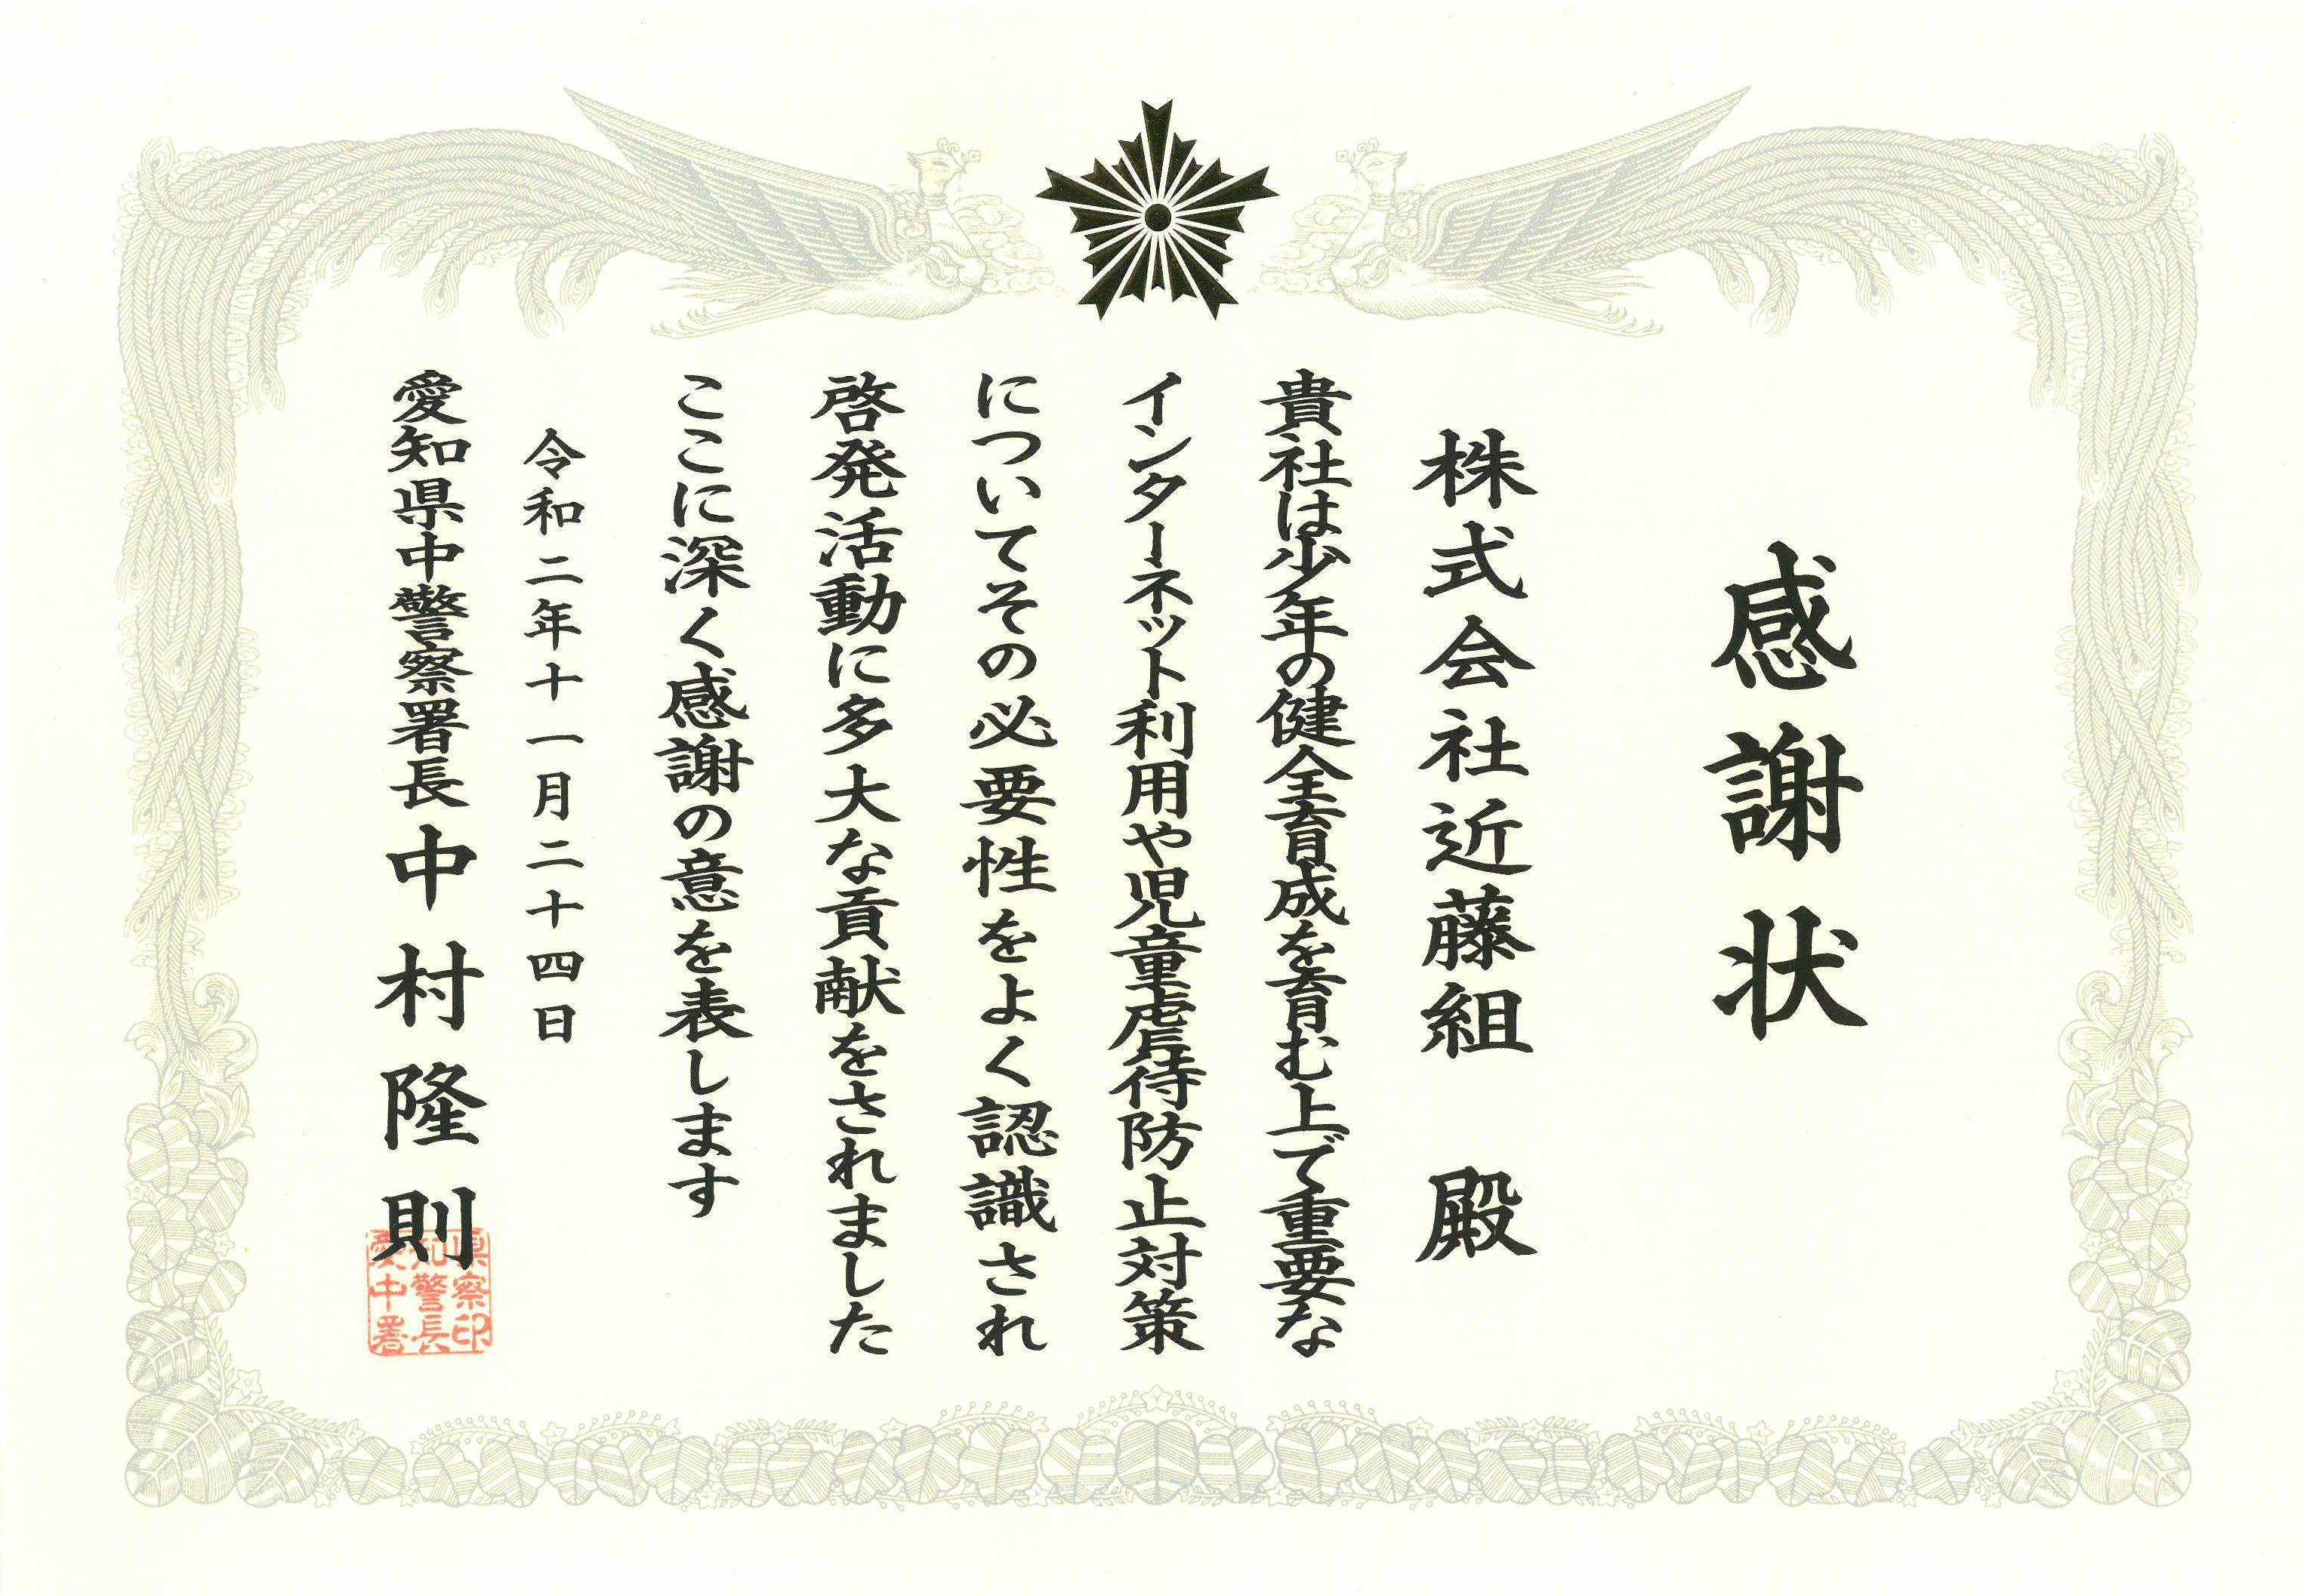 感謝状
株式会社近藤組 殿
貴社は少年の健全育成を育む上で重要な
インターネット利用や児童虐待防止対策
についてその必要性をよく認識され
啓発活動に多大な貢献をされました
ここに深く感謝の意を表します
令和二年十一月二十四日
愛知県中警察署長中村隆則
県察印
知警長
愛中署